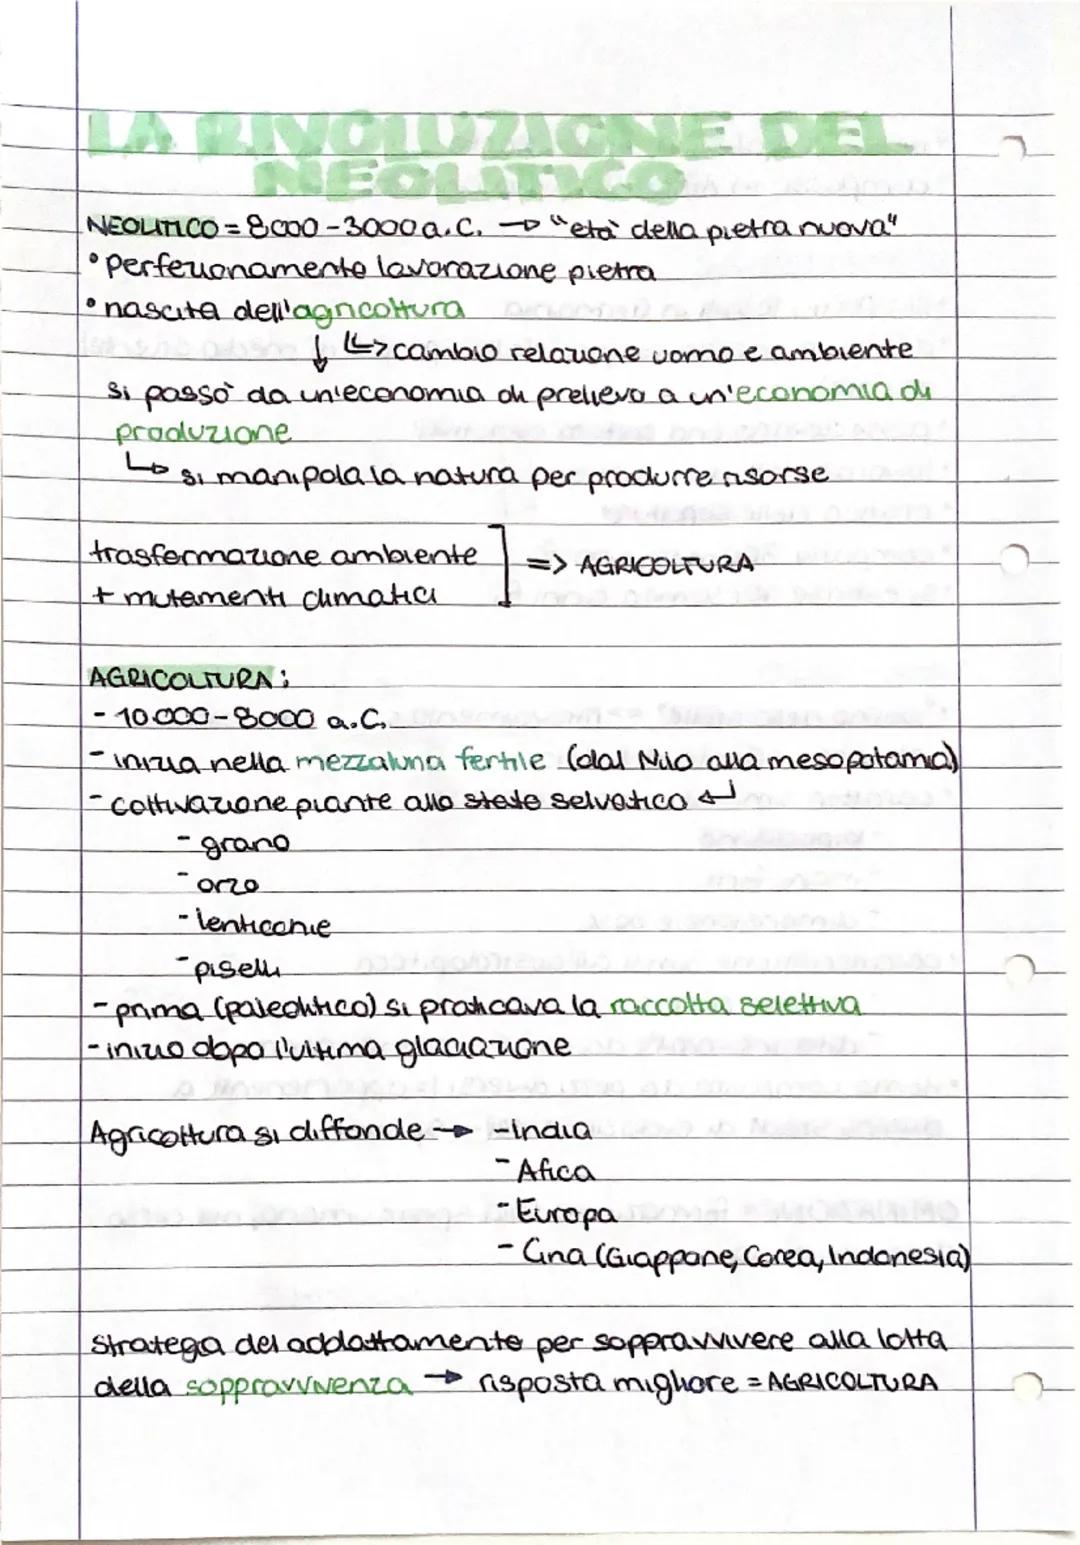 LA RIVOLUZIONE DEL
NEOLITICO
NEOLITICO = 8000-3000 a.C. → "età della pietra nuova"
• perfezionamento lavorazione pietra
• nascita dell'agricoltura
↓ ↳> cambio relazione uomo e ambiente
si passò da un'economia di prelievo a un'economia di
produzione
↳ si manipola la natura per produrre risorse
trasformazione ambiente
+ mutamenti climatici ] => AGRICOLTURA
AGRICOLTURA:
- 10.000-8000 a.C.
- inizia nella mezzaluna fertile (dal Nilo alla mesopotamia)
- coltivazione piante allo stato selvatico ↵
- grano
- orzo
- lenticchie
- piselli
- prima (paleolitico) si praticava la raccolta selettiva
- inizio dopo l'ultima glaciazione
Agricoltura si diffonde → - India
- Afica
- Europa
- Cina (Giappone, Corea, Indonesia)
Stratega del addattamento per sopravvivere alla lotta
della soppravvivenza → risposta migliore = AGRICOLTURA